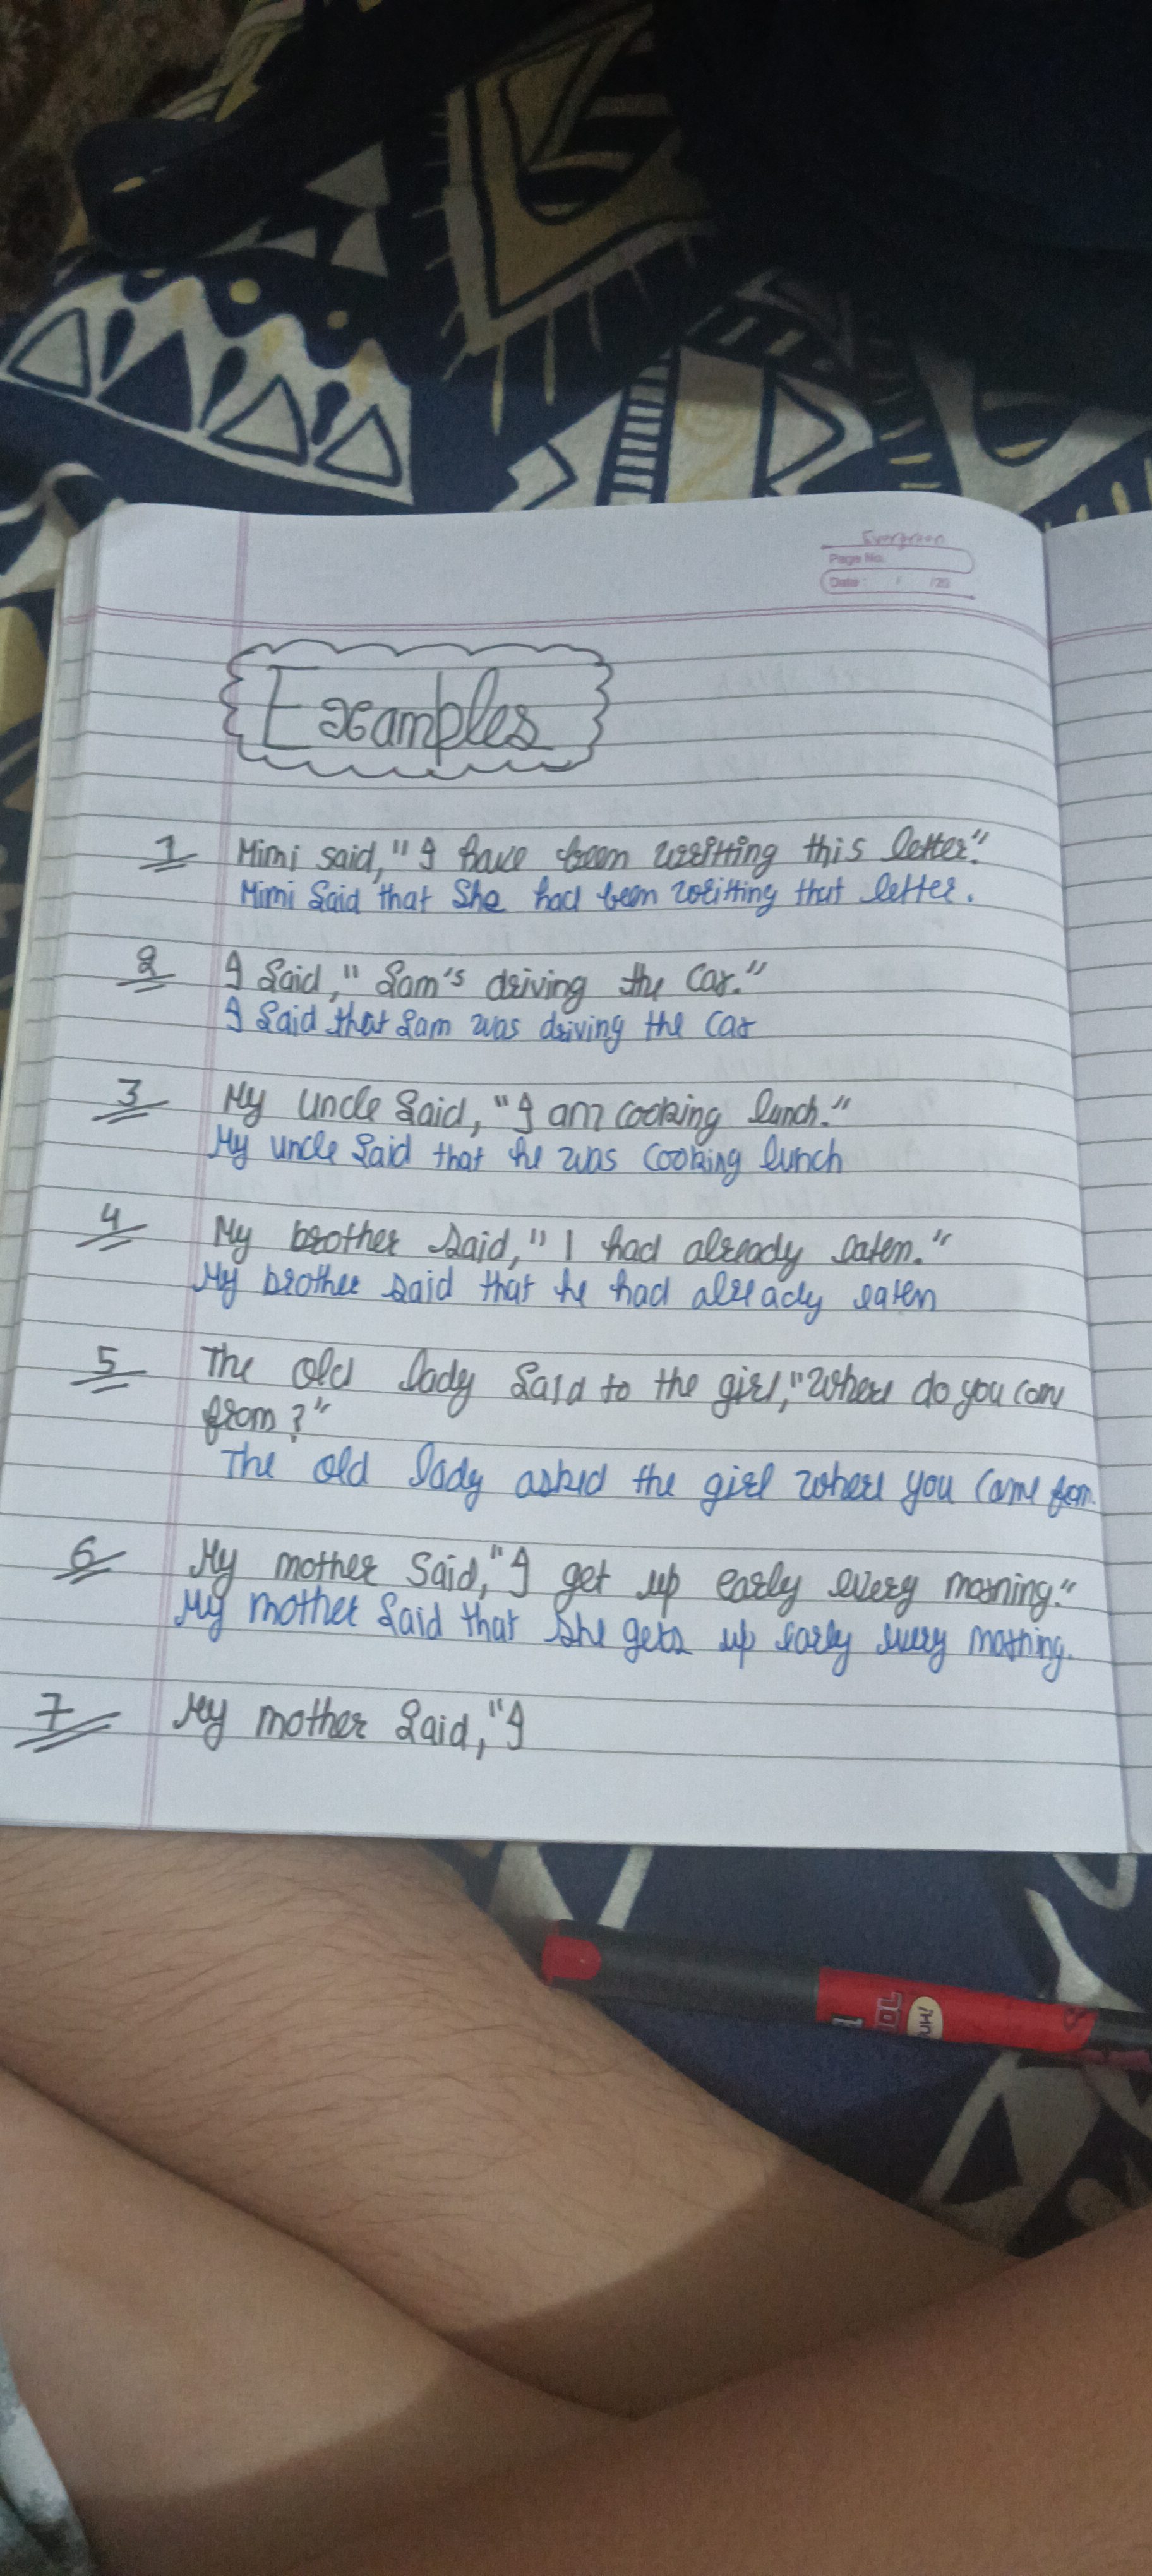 Evergreen
Page No.
Date : / /20
Examples
1 Mimi said, "I have been writting this letter."
Mimi Said that She had been writting that letter.
2 I Said, "Sam's driving the Car."
I Said that Sam was driving the Car
3 My uncle Said, "I am cooking lunch."
My uncle Said that he was Cooking lunch
4 My brother said, "I had already eaten."
My brother said that he had already eaten
5 The old lady Said to the girl, "Where do you come
from?"
The old lady asked the girl where you came from.
6 My mother Said, "I get up early every morning."
My mother Said that she gets up early every morning.
7 My mother Said, "I
UH!